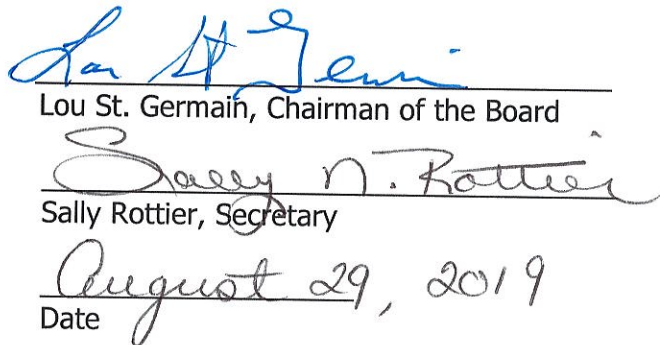 Lou St. Germain
Lou St. Germain, Chairman of the Board
Sally N. Rottier
Sally Rottier, Secretary
August 29, 2019
Date